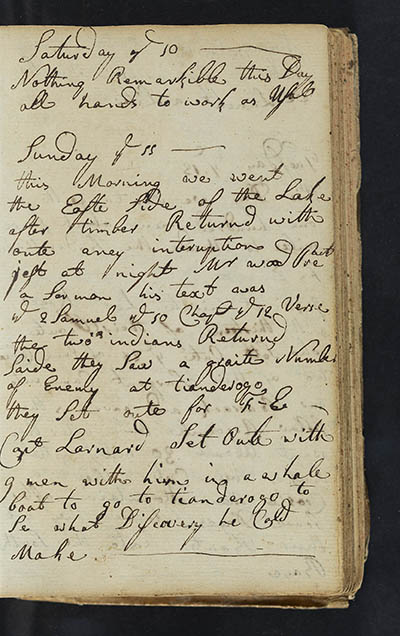 Saturday ye 10
Nothing Remarkible this Day
all hands to work as Usal
Sunday ye 11
this Morning we went
the Easte side of the Lake
after timber Returnd with
oute aney interuption
jest at night Mr wood Preacht
a Sarmon his text was
ye 2 Samuel ye 10 Chapt ye 12 Verse
the two indians Returnd
Saide they Saw a graite Number
of Enemy at tianderogo
they Set oute for F: E
Capt Larnard Set Oute with
9 men with him in a whale
boat to go to tianderogo to
Se what Discovery he Cold
Make